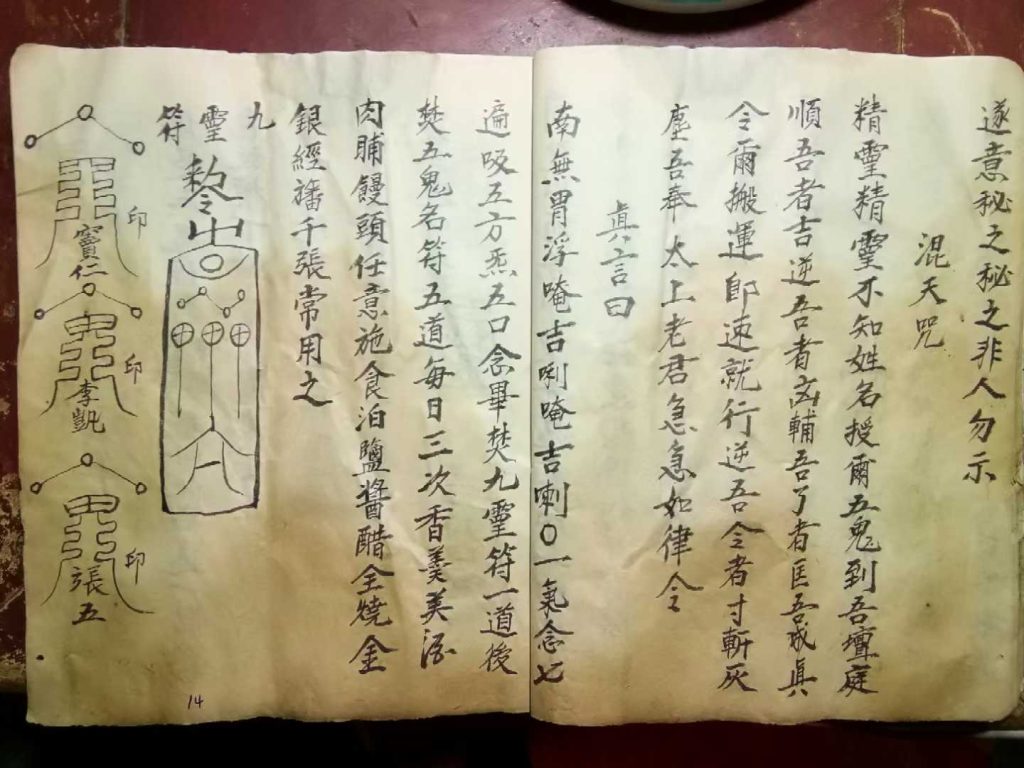 遂意秘之秘之非人勿示
混天咒
精靈精靈不知姓名授爾五鬼到吾壇庭
順吾者吉逆吾者凶輔吾了者匡吾成真
令爾搬運即速就行逆吾令者寸斬灰
塵吾奉太上老君急急如律令
真言曰
南無胃浮唵吉唎唵吉喇〇一氣念七
遍吸五方炁五口念畢焚九靈符一道後
焚五鬼名符五道每日三次香羹美酒
肉脯饅頭任意施食泊鹽醬醋全燒金
銀經旛千張常用之
九
靈
符
敕令
印
竇仁
印
李凱
印
張五
14